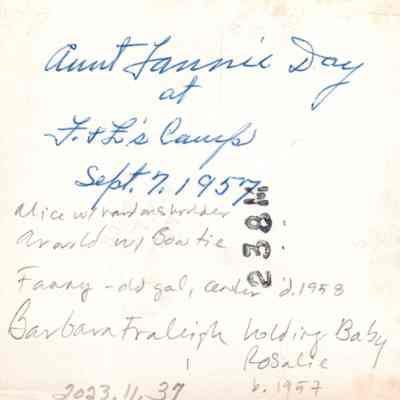 Aunt Fannie Day
at
F. & L's Camp
Sept. 7, 1957
Alice w/ hand on shoulder
Arnold w/ Bowtie
Fanny - old gal, center d. 1958
Barbara Fraleigh holding Baby
Rosalie
b. 1957
2023.11.37
238M